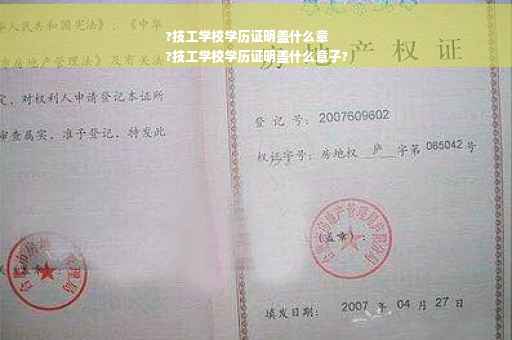 ?技工学校学历证明盖什么章
?技工学校学历证明盖什么章子?
共和国宪法》及
房地产管理法》及有关法
定，对权利人申请登记本证所
审查属实，准予登记，特发此
房地产权证
登 记 号：2007609602
权证字号：房地权 庐 字第 065042 号
(盖章)：
填发日期： 2007 年 04 月 27 日